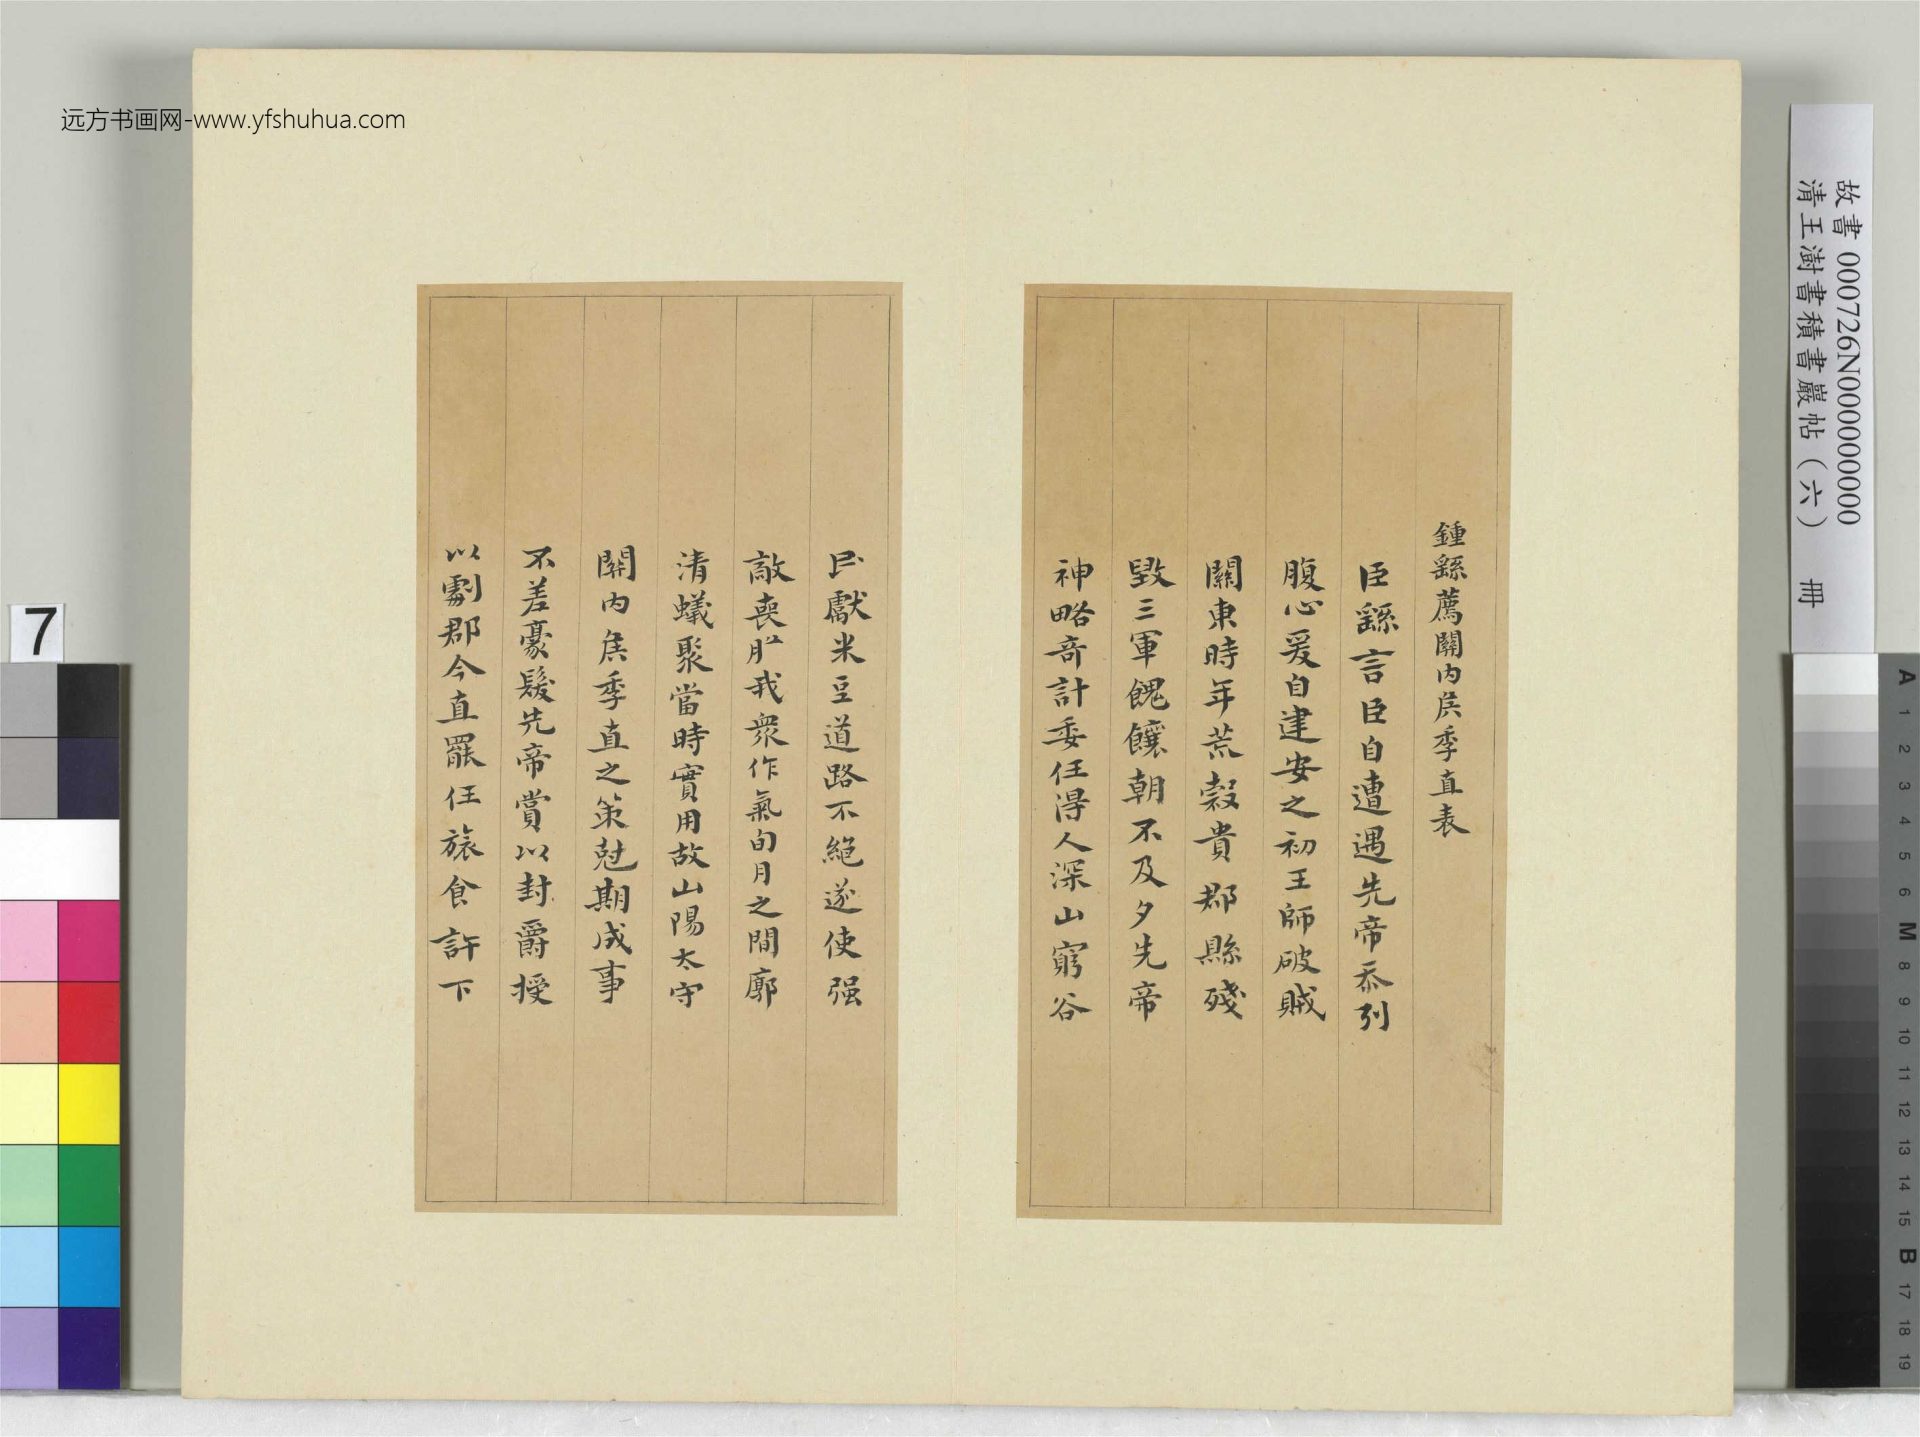 远方书画网-www.yfshuhua.com
故書 00726N000000000
清王澍書積書巖帖（六） 冊
鍾繇薦關內侯季直表
臣繇言臣自遭遇先帝忝列
腹心爰自建安之初王師破賊
關東時年荒榖貴郡縣殘
毀三軍餽饟朝不及夕先帝
神略奇計委任得人深山窮谷
民獻米豆道路不絕遂使强
敵喪膽我衆作氣旬月之間廓
清蟻聚當時實用故山陽太守
關內侯季直之策尅期成事
不差豪髮先帝賞以封爵授
以劇郡今直罷任旅食許下
7
A 1 2 3 4 5 6 M 8 9 10 11 12 13 14 15 B 17 18 19